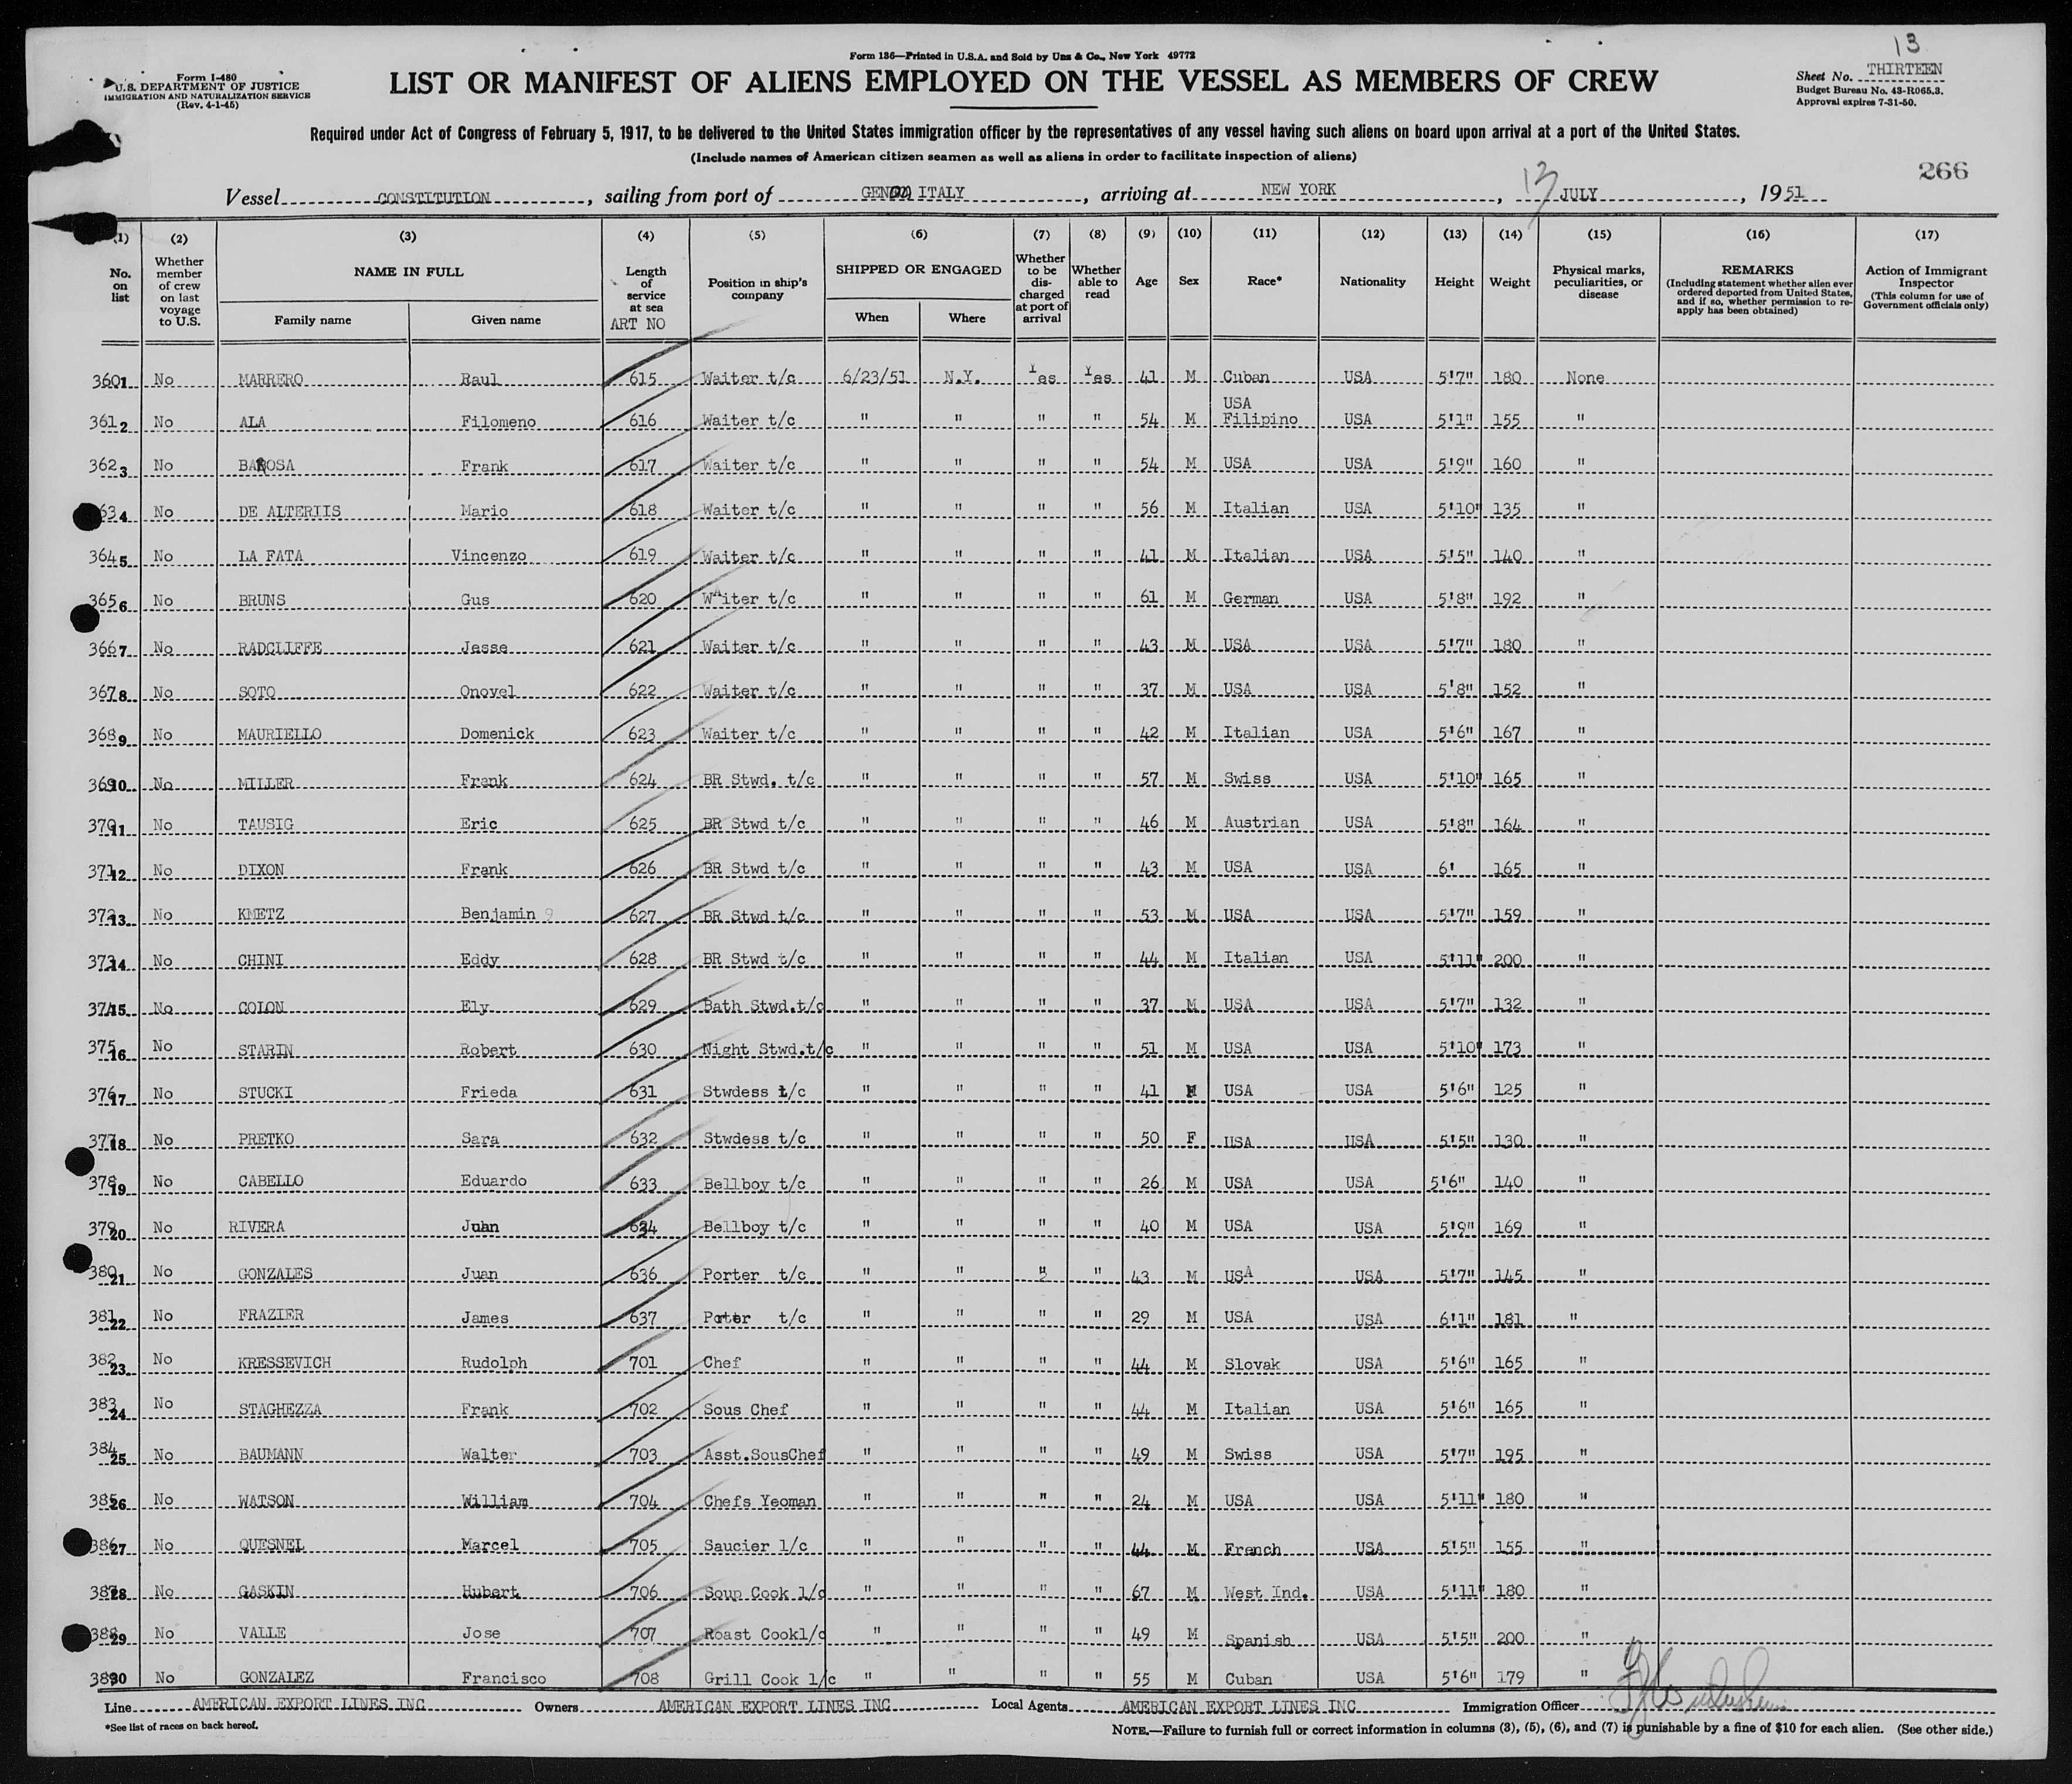 Form 136—Printed in U.S.A. and Sold by Unz & Co., New York 49772
13
Form I-480
U.S. DEPARTMENT OF JUSTICE
IMMIGRATION AND NATURALIZATION SERVICE
(Rev. 4-1-45)
LIST OR MANIFEST OF ALIENS EMPLOYED ON THE VESSEL AS MEMBERS OF CREW
Sheet No. THIRTEEN
Budget Bureau No. 43-R065.3.
Approval expires 7-31-50.
Required under Act of Congress of February 5, 1917, to be delivered to the United States immigration officer by the representatives of any vessel having such aliens on board upon arrival at a port of the United States.
(Include names of American citizen seamen as well as aliens in order to facilitate inspection of aliens)
266
Vessel CONSTITUTION, sailing from port of GENOA ITALY, arriving at NEW YORK, 13 JULY, 1951
(1) (2) (3) (4) (5) (6) (7) (8) (9) (10) (11) (12) (13) (14) (15) (16) (17)
No. on list Whether member of crew on last voyage to U.S. NAME IN FULL Family name Given name Length of service at sea ART NO Position in ship's company SHIPPED OR ENGAGED When Where Whether to be discharged at port of arrival Whether able to read Age Sex Race* Nationality Height Weight Physical marks, peculiarities, or disease REMARKS (Including statement whether alien ever ordered deported from United States, and if so, whether permission to re-apply has been obtained) Action of Immigrant Inspector (This column for use of Government officials only)
360 1 No MARRERO Raul 615 Waiter t/c 6/23/51 N.Y. Yes Yes 41 M Cuban USA 5'7" 180 None
USA
361 2 No ALA Filomeno 616 Waiter t/c " " " " 54 M Filipino USA 5'1" 155 "
362 3 No BAROSA Frank 617 Waiter t/c " " " " 54 M USA USA 5'9" 160 "
363 4 No DE ALTERIIS Mario 618 Waiter t/c " " " " 56 M Italian USA 5'10" 135 "
364 5 No LA FATA Vincenzo 619 Waiter t/c " " " " 41 M Italian USA 5'5" 140 "
365 6 No BRUNS Gus 620 Waiter t/c " " " " 61 M German USA 5'8" 192 "
366 7 No RADCLIFFE Jesse 621 Waiter t/c " " " " 43 M USA USA 5'7" 180 "
367 8 No SOTO Onovel 622 Waiter t/c " " " " 37 M USA USA 5'8" 152 "
368 9 No MAURIELLO Domenick 623 Waiter t/c " " " " 42 M Italian USA 5'6" 167 "
369 10 No MILLER Frank 624 BR Stwd. t/c " " " " 57 M Swiss USA 5'10" 165 "
370 11 No TAUSIG Eric 625 BR Stwd t/c " " " " 46 M Austrian USA 5'8" 164 "
371 12 No DIXON Frank 626 BR Stwd t/c " " " " 43 M USA USA 6' 165 "
372 13 No KMETZ Benjamin 627 BR Stwd t/c " " " " 53 M USA USA 5'7" 159 "
373 14 No CHINI Eddy 628 BR Stwd t/c " " " " 44 M Italian USA 5'11" 200 "
374 15 No COLON Ely 629 Bath Stwd.t/c " " " " 37 M USA USA 5'7" 132 "
375 16 No STARIN Robert 630 Night Stwd.t/c " " " " 51 M USA USA 5'10" 173 "
376 17 No STUCKI Frieda 631 Stwdess t/c " " " " 41 F USA USA 5'6" 125 "
377 18 No PRETKO Sara 632 Stwdess t/c " " " " 50 F USA USA 5'5" 130 "
378 19 No CABELLO Eduardo 633 Bellboy t/c " " " " 26 M USA USA 5'6" 140 "
379 20 No RIVERA Juan 634 Bellboy t/c " " " " 40 M USA USA 5'9" 169 "
380 21 No GONZALES Juan 636 Porter t/c " " " " 43 M USA USA 5'7" 145 "
381 22 No FRAZIER James 637 Porter t/c " " " " 29 M USA USA 6'1" 181 "
382 23 No KRESSEVICH Rudolph 701 Chef " " " " 44 M Slovak USA 5'6" 165 "
383 24 No STAGHEZZA Frank 702 Sous Chef " " " " 44 M Italian USA 5'6" 165 "
384 25 No BAUMANN Walter 703 Asst.SousChef " " " " 49 M Swiss USA 5'7" 195 "
385 26 No WATSON William 704 Chefs Yeoman " " " " 24 M USA USA 5'11" 180 "
386 27 No QUESNEL Marcel 705 Saucier l/c " " " " 44 M French USA 5'5" 155 "
387 28 No GASKIN Hubert 706 Soup Cook l/c " " " " 67 M West Ind. USA 5'11" 180 "
388 29 No VALLE Jose 707 Roast Cookl/c " " " " 49 M Spanish USA 5'5" 200 "
389 30 No GONZALEZ Francisco 708 Grill Cook l/c " " " " 55 M Cuban USA 5'6" 179 "
Line AMERICAN EXPORT LINES INC Owners AMERICAN EXPORT LINES INC Local Agents AMERICAN EXPORT LINES INC Immigration Officer
*See list of races on back hereof.
NOTE.—Failure to furnish full or correct information in columns (3), (5), (6), and (7) is punishable by a fine of $10 for each alien. (See other side.)